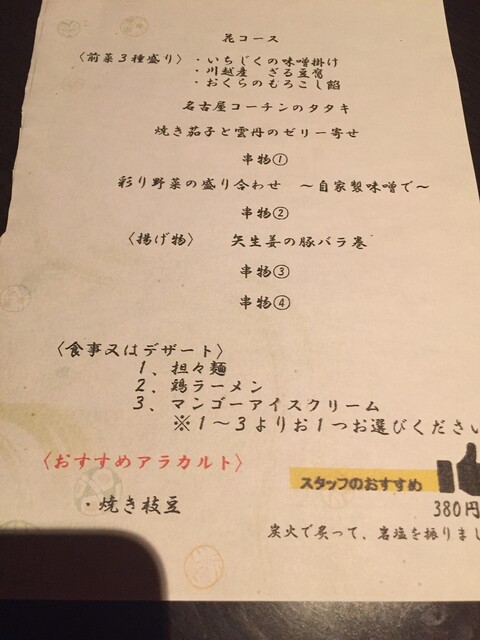 花コース
〈前菜3種盛り〉・いちじくの味噌掛け
・川越産 ざる豆腐
・おくらのもろこし餡
名古屋コーチンのタタキ
焼き茄子と雲丹のゼリー寄せ
串物①
彩り野菜の盛り合わせ ～自家製味噌で～
串物②
〈揚げ物〉 矢生姜の豚バラ巻
串物③
串物④
〈食事又はデザート〉
1、担々麺
2、鶏ラーメン
3、マンゴーアイスクリーム
※1～3よりお1つお選びください
〈おすすめアラカルト〉
スタッフのおすすめ
・焼き枝豆
380円
炭火で炙って、岩塩を振りまし